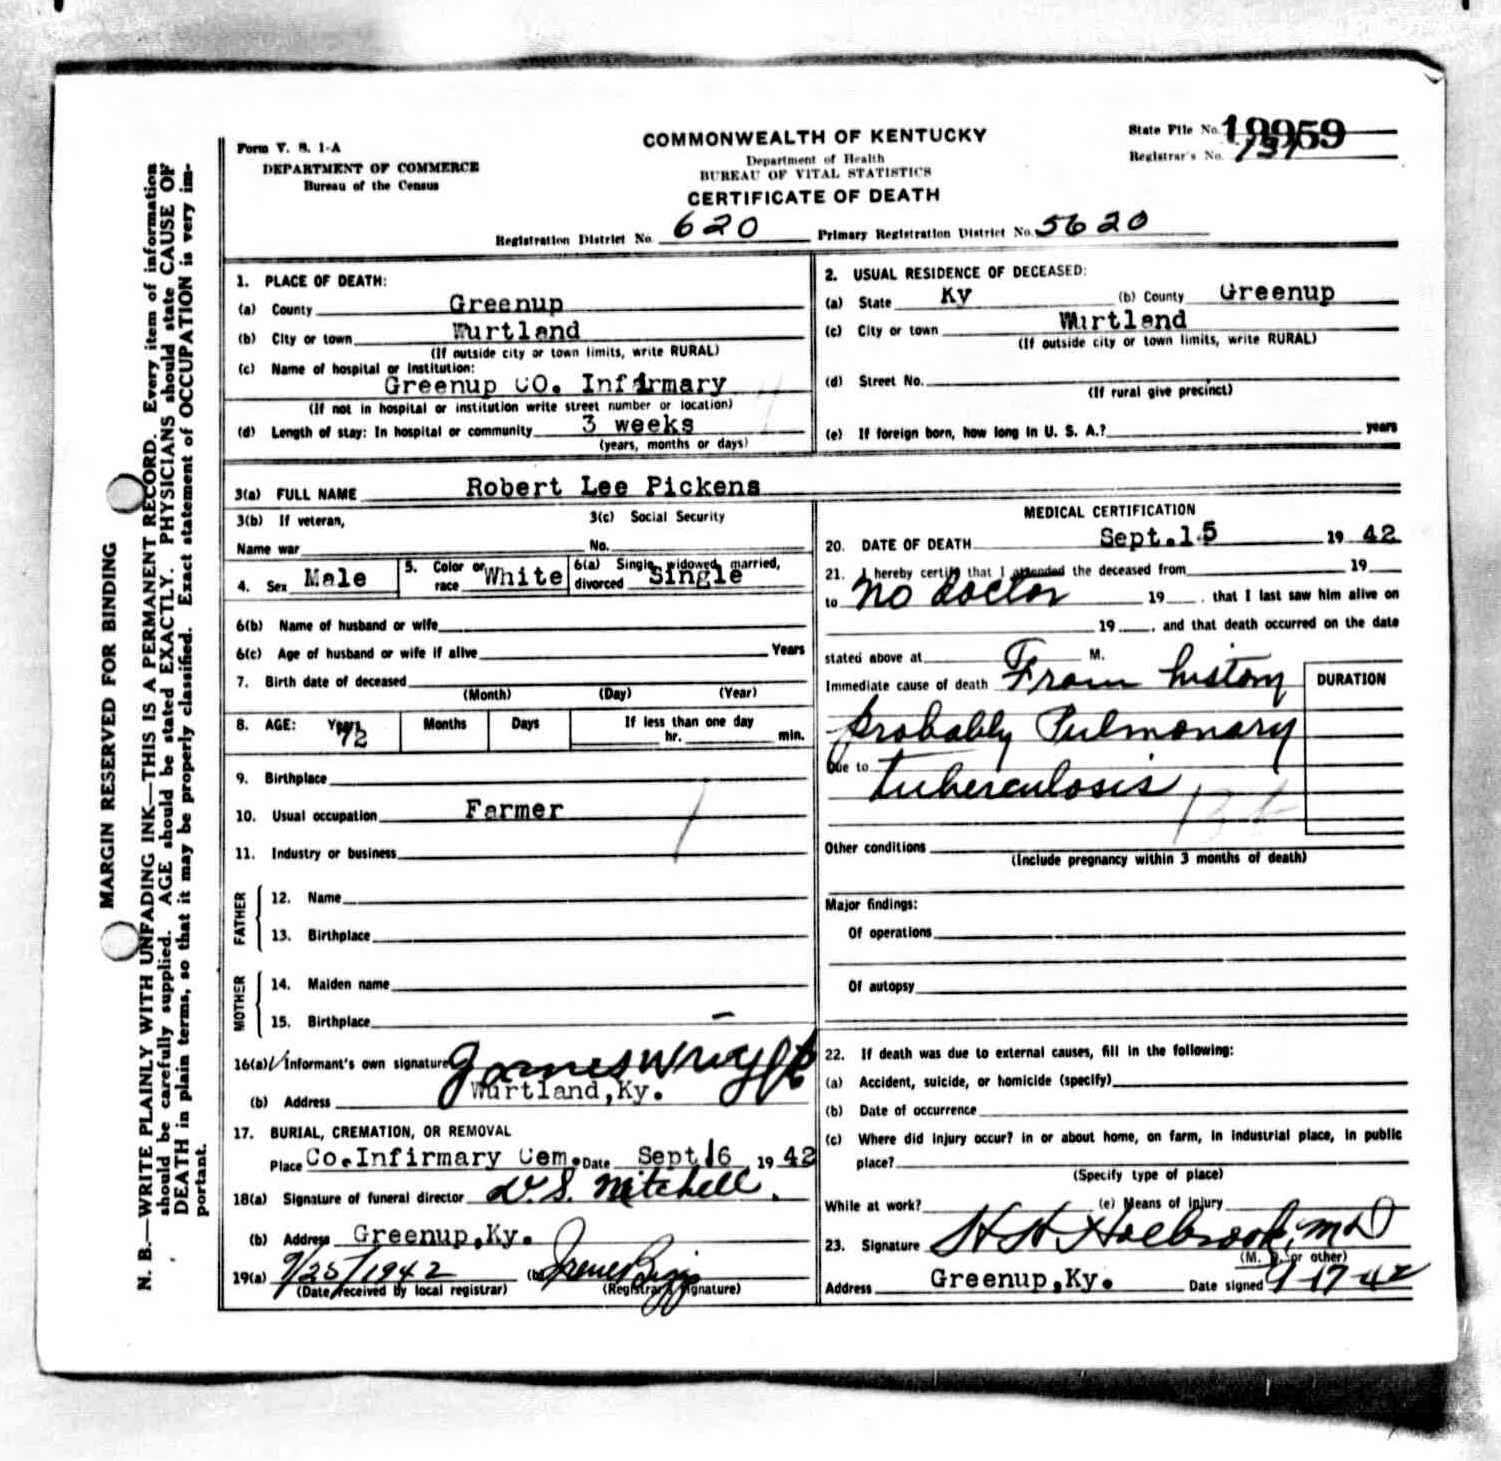 Form V. S. 1-A
DEPARTMENT OF COMMERCE
Bureau of the Census
COMMONWEALTH OF KENTUCKY
Department of Health
BUREAU OF VITAL STATISTICS
CERTIFICATE OF DEATH
State File No. 19959
Registrar's No.
Registration District No. 620 Primary Registration District No. 5620
MARGIN RESERVED FOR BINDING
N. B.—WRITE PLAINLY WITH UNFADING INK—THIS IS A PERMANENT RECORD. Every item of information
should be carefully supplied. AGE should be stated EXACTLY. PHYSICIANS should state CAUSE OF
DEATH in plain terms, so that it may be properly classified. Exact statement of OCCUPATION is very im-
portant.
1. PLACE OF DEATH:
(a) County Greenup
(b) City or town Wurtland
(If outside city or town limits, write RURAL)
(c) Name of hospital or institution:
Greenup CO. Infirmary
(If not in hospital or institution write street number or location)
(d) Length of stay: In hospital or community 3 weeks
(years, months or days)
2. USUAL RESIDENCE OF DECEASED:
(a) State Ky (b) County Greenup
(c) City or town Wurtland
(If outside city or town limits, write RURAL)
(d) Street No.
(If rural give precinct)
(e) If foreign born, how long in U. S. A.? years
3(a) FULL NAME Robert Lee Pickens
3(b) If veteran, 3(c) Social Security
Name war No.
4. Sex Male 5. Color or race White 6(a) Single, widowed, married, divorced Single
6(b) Name of husband or wife
6(c) Age of husband or wife if alive Years
7. Birth date of deceased
(Month) (Day) (Year)
8. AGE: Years 72 Months Days If less than one day
hr. min.
9. Birthplace
10. Usual occupation Farmer
11. Industry or business
FATHER
12. Name
13. Birthplace
MOTHER
14. Maiden name
15. Birthplace
16(a) Informant's own signature James Wright
(b) Address Wurtland, Ky.
17. BURIAL, CREMATION, OR REMOVAL
Place Co. Infirmary Cem. Date Sept 16 1942
18(a) Signature of funeral director D. S. Mitchell.
(b) Address Greenup, Ky.
19(a) 9/25/1942 (b) Irene Biggs
(Date received by local registrar) (Registrar's signature)
MEDICAL CERTIFICATION
20. DATE OF DEATH Sept. 15 1942
21. I hereby certify that I attended the deceased from 19
to no doctor 19 , that I last saw him alive on
19 , and that death occurred on the date
stated above at M.
Immediate cause of death From history
DURATION
probably Pulmonary
Due to tuberculosis
Other conditions
(Include pregnancy within 3 months of death)
Major findings:
Of operations
Of autopsy
22. If death was due to external causes, fill in the following:
(a) Accident, suicide, or homicide (specify)
(b) Date of occurrence
(c) Where did injury occur? in or about home, on farm, in industrial place, in public
place?
(Specify type of place)
While at work? (e) Means of Injury
23. Signature H H Holbrook, MD
(M. D. or other)
Address Greenup, Ky. Date signed 9-17-42